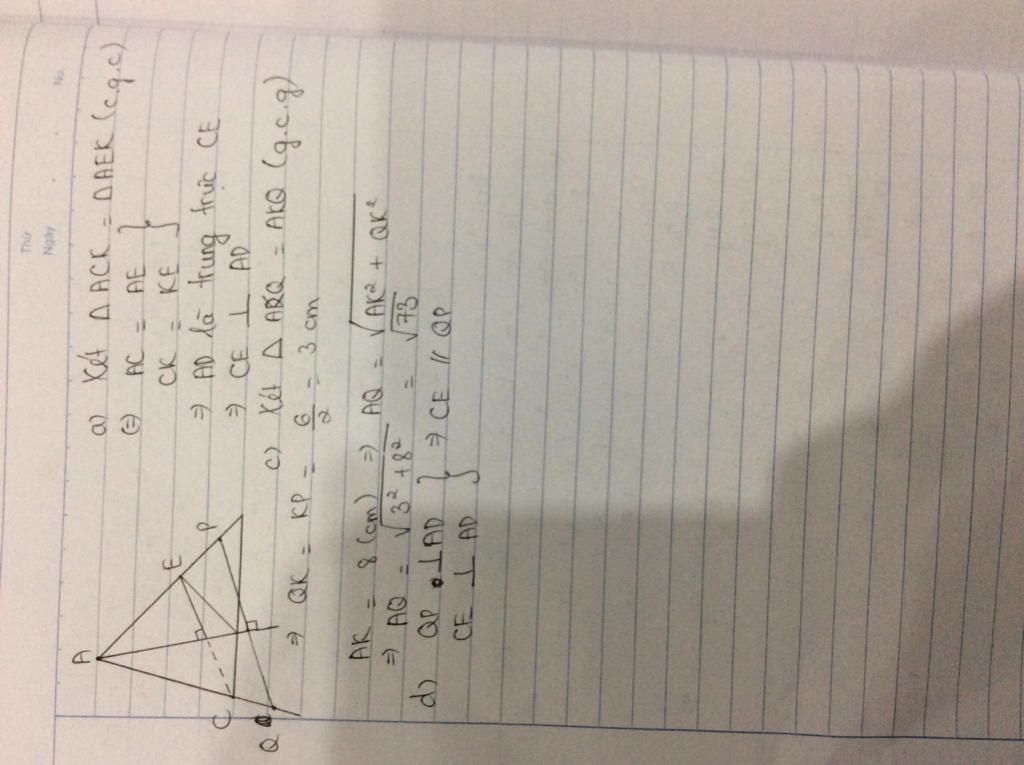 Thứ
Ngày
No.
A
E
P
C
Q
a) Xét Δ ACK = ΔAEK (c.g.c)
(=) AC = AE }
CK = KE
⇒ AD là trung trực CE
⇒ CE ⊥ AD
c) Xét Δ APQ = AKQ (g.c.g)
⇒ QK = KP = 6/2 = 3 cm
AK = 8 (cm) ⇒ AQ = √AK² + QK²
⇒ AQ = √3² + 8² = √73
d) QP ⊥ AD } ⇒ CE // QP
CE ⊥ AD